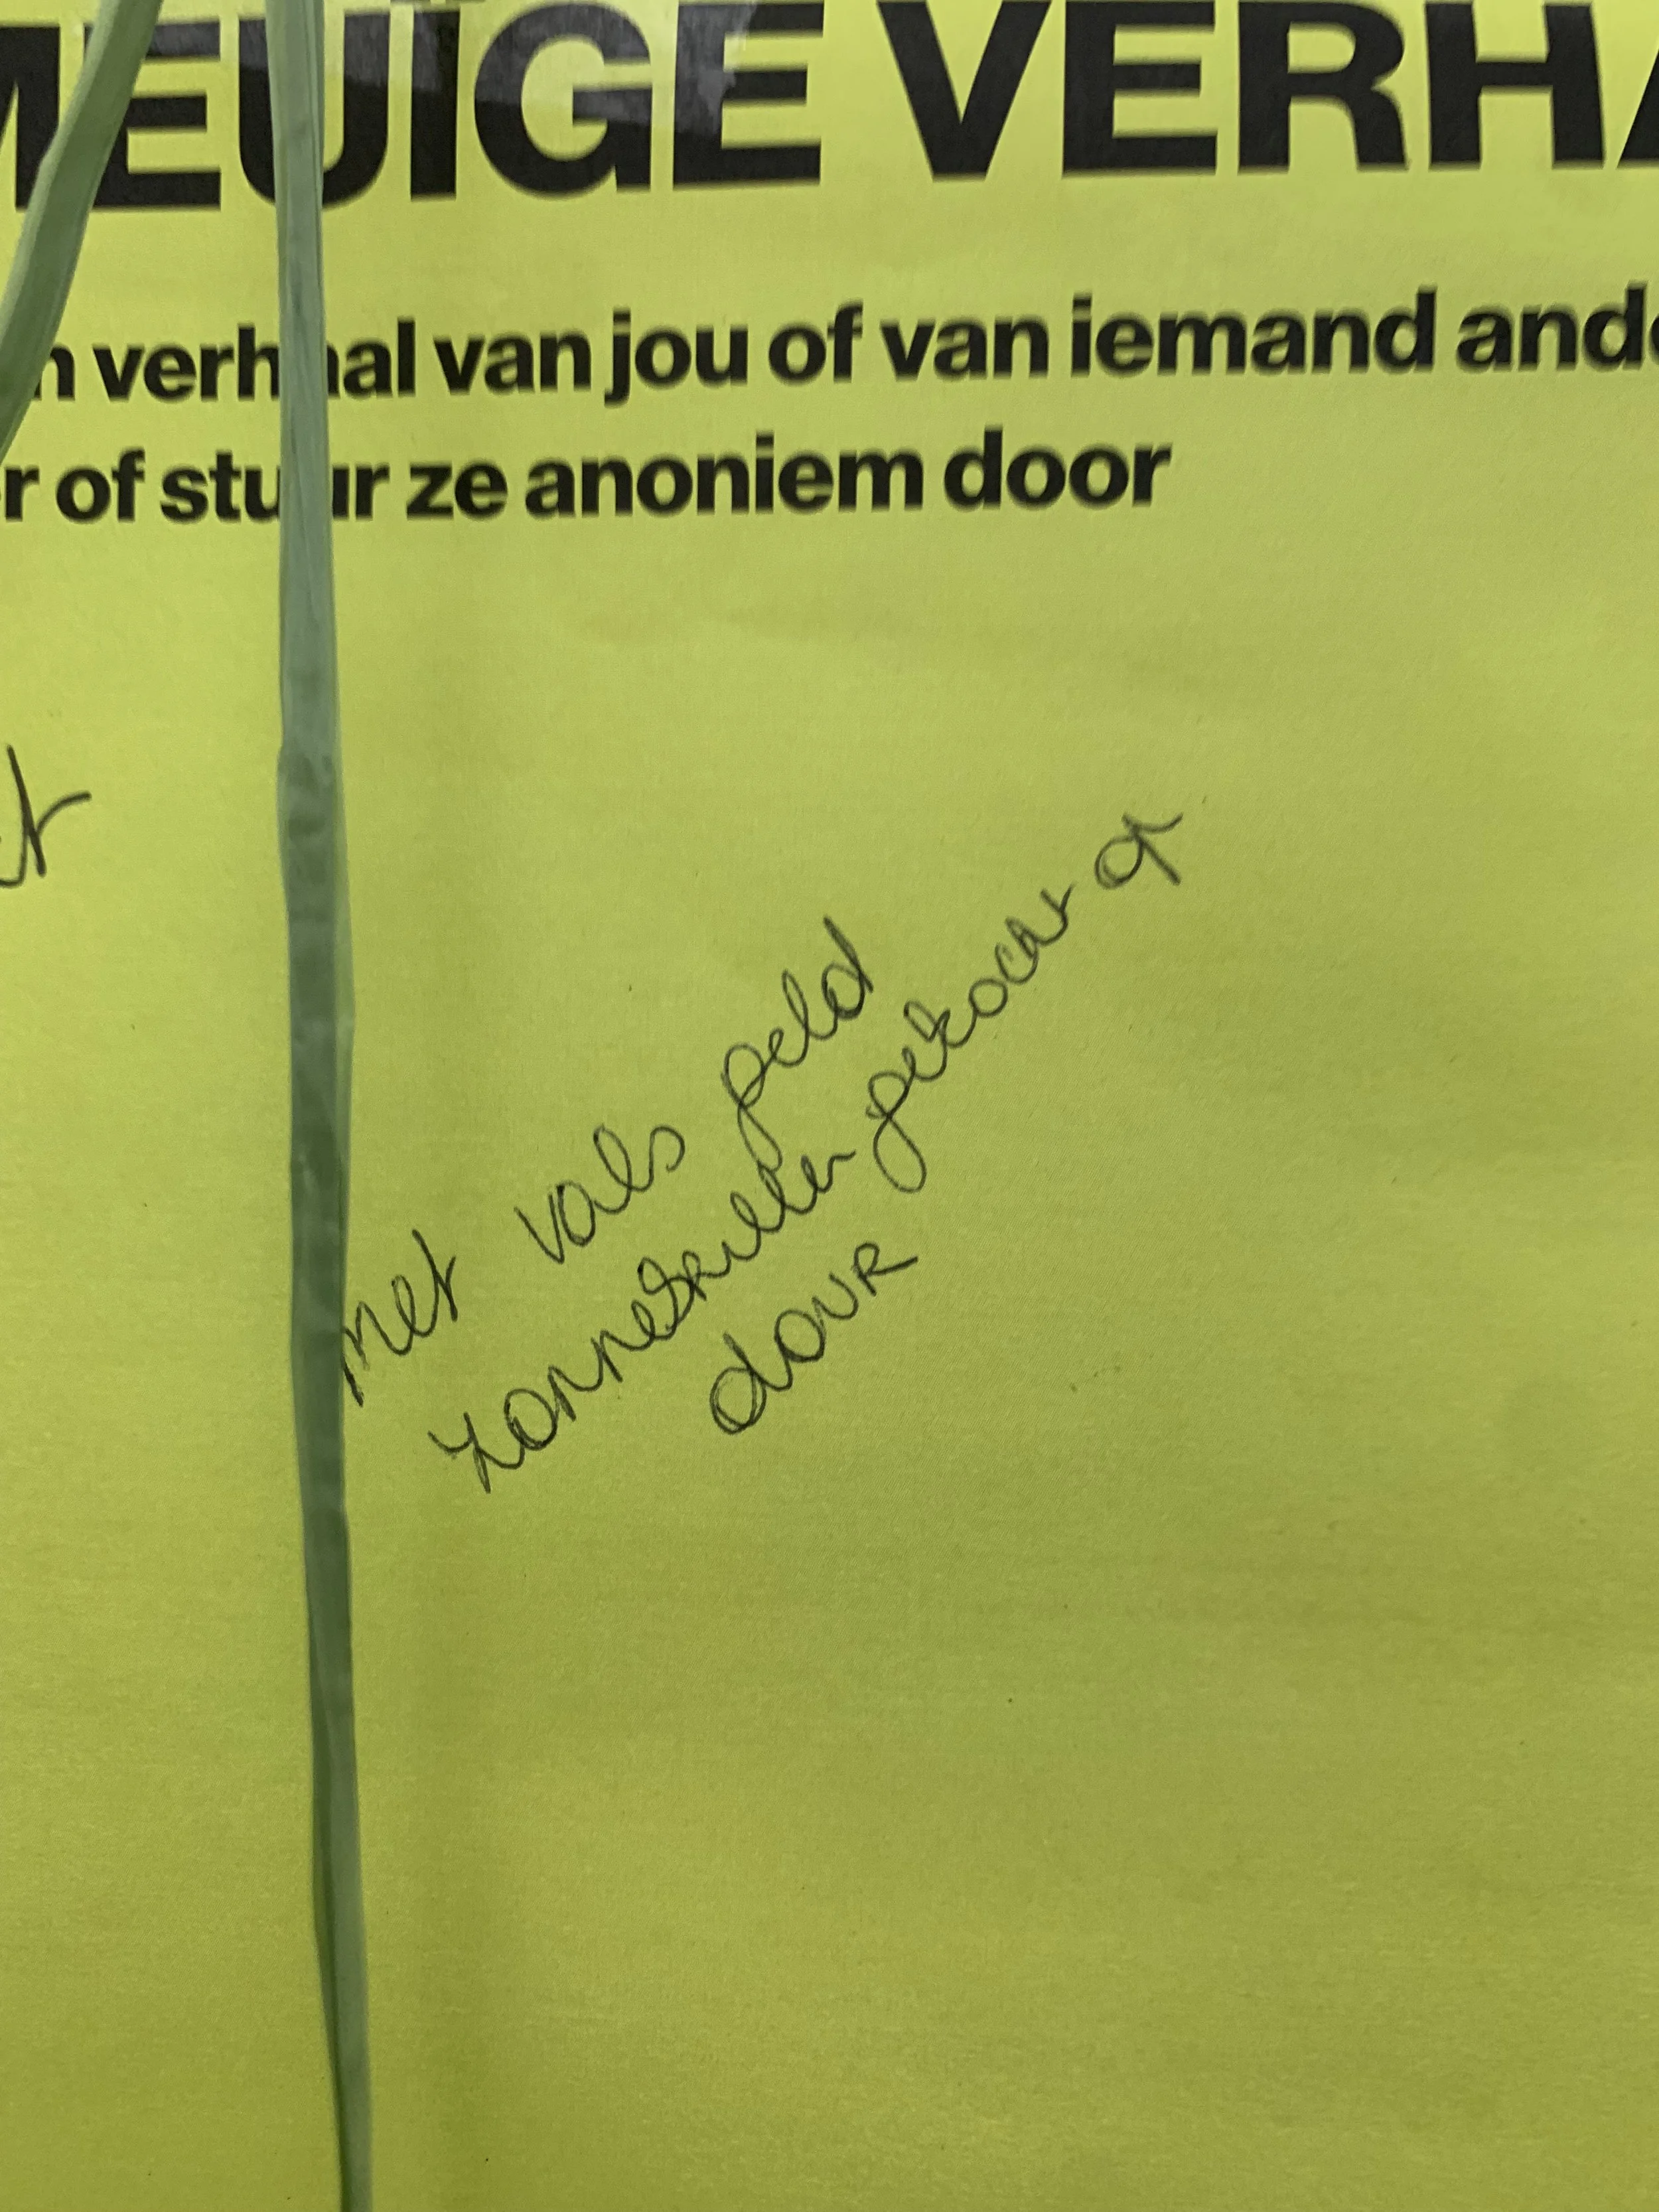 MEUÏGE VERHA
n verhaal van jou of van iemand ande
r of stuur ze anoniem door
t
met vals geld
zonnebrillen gekocht op
dour